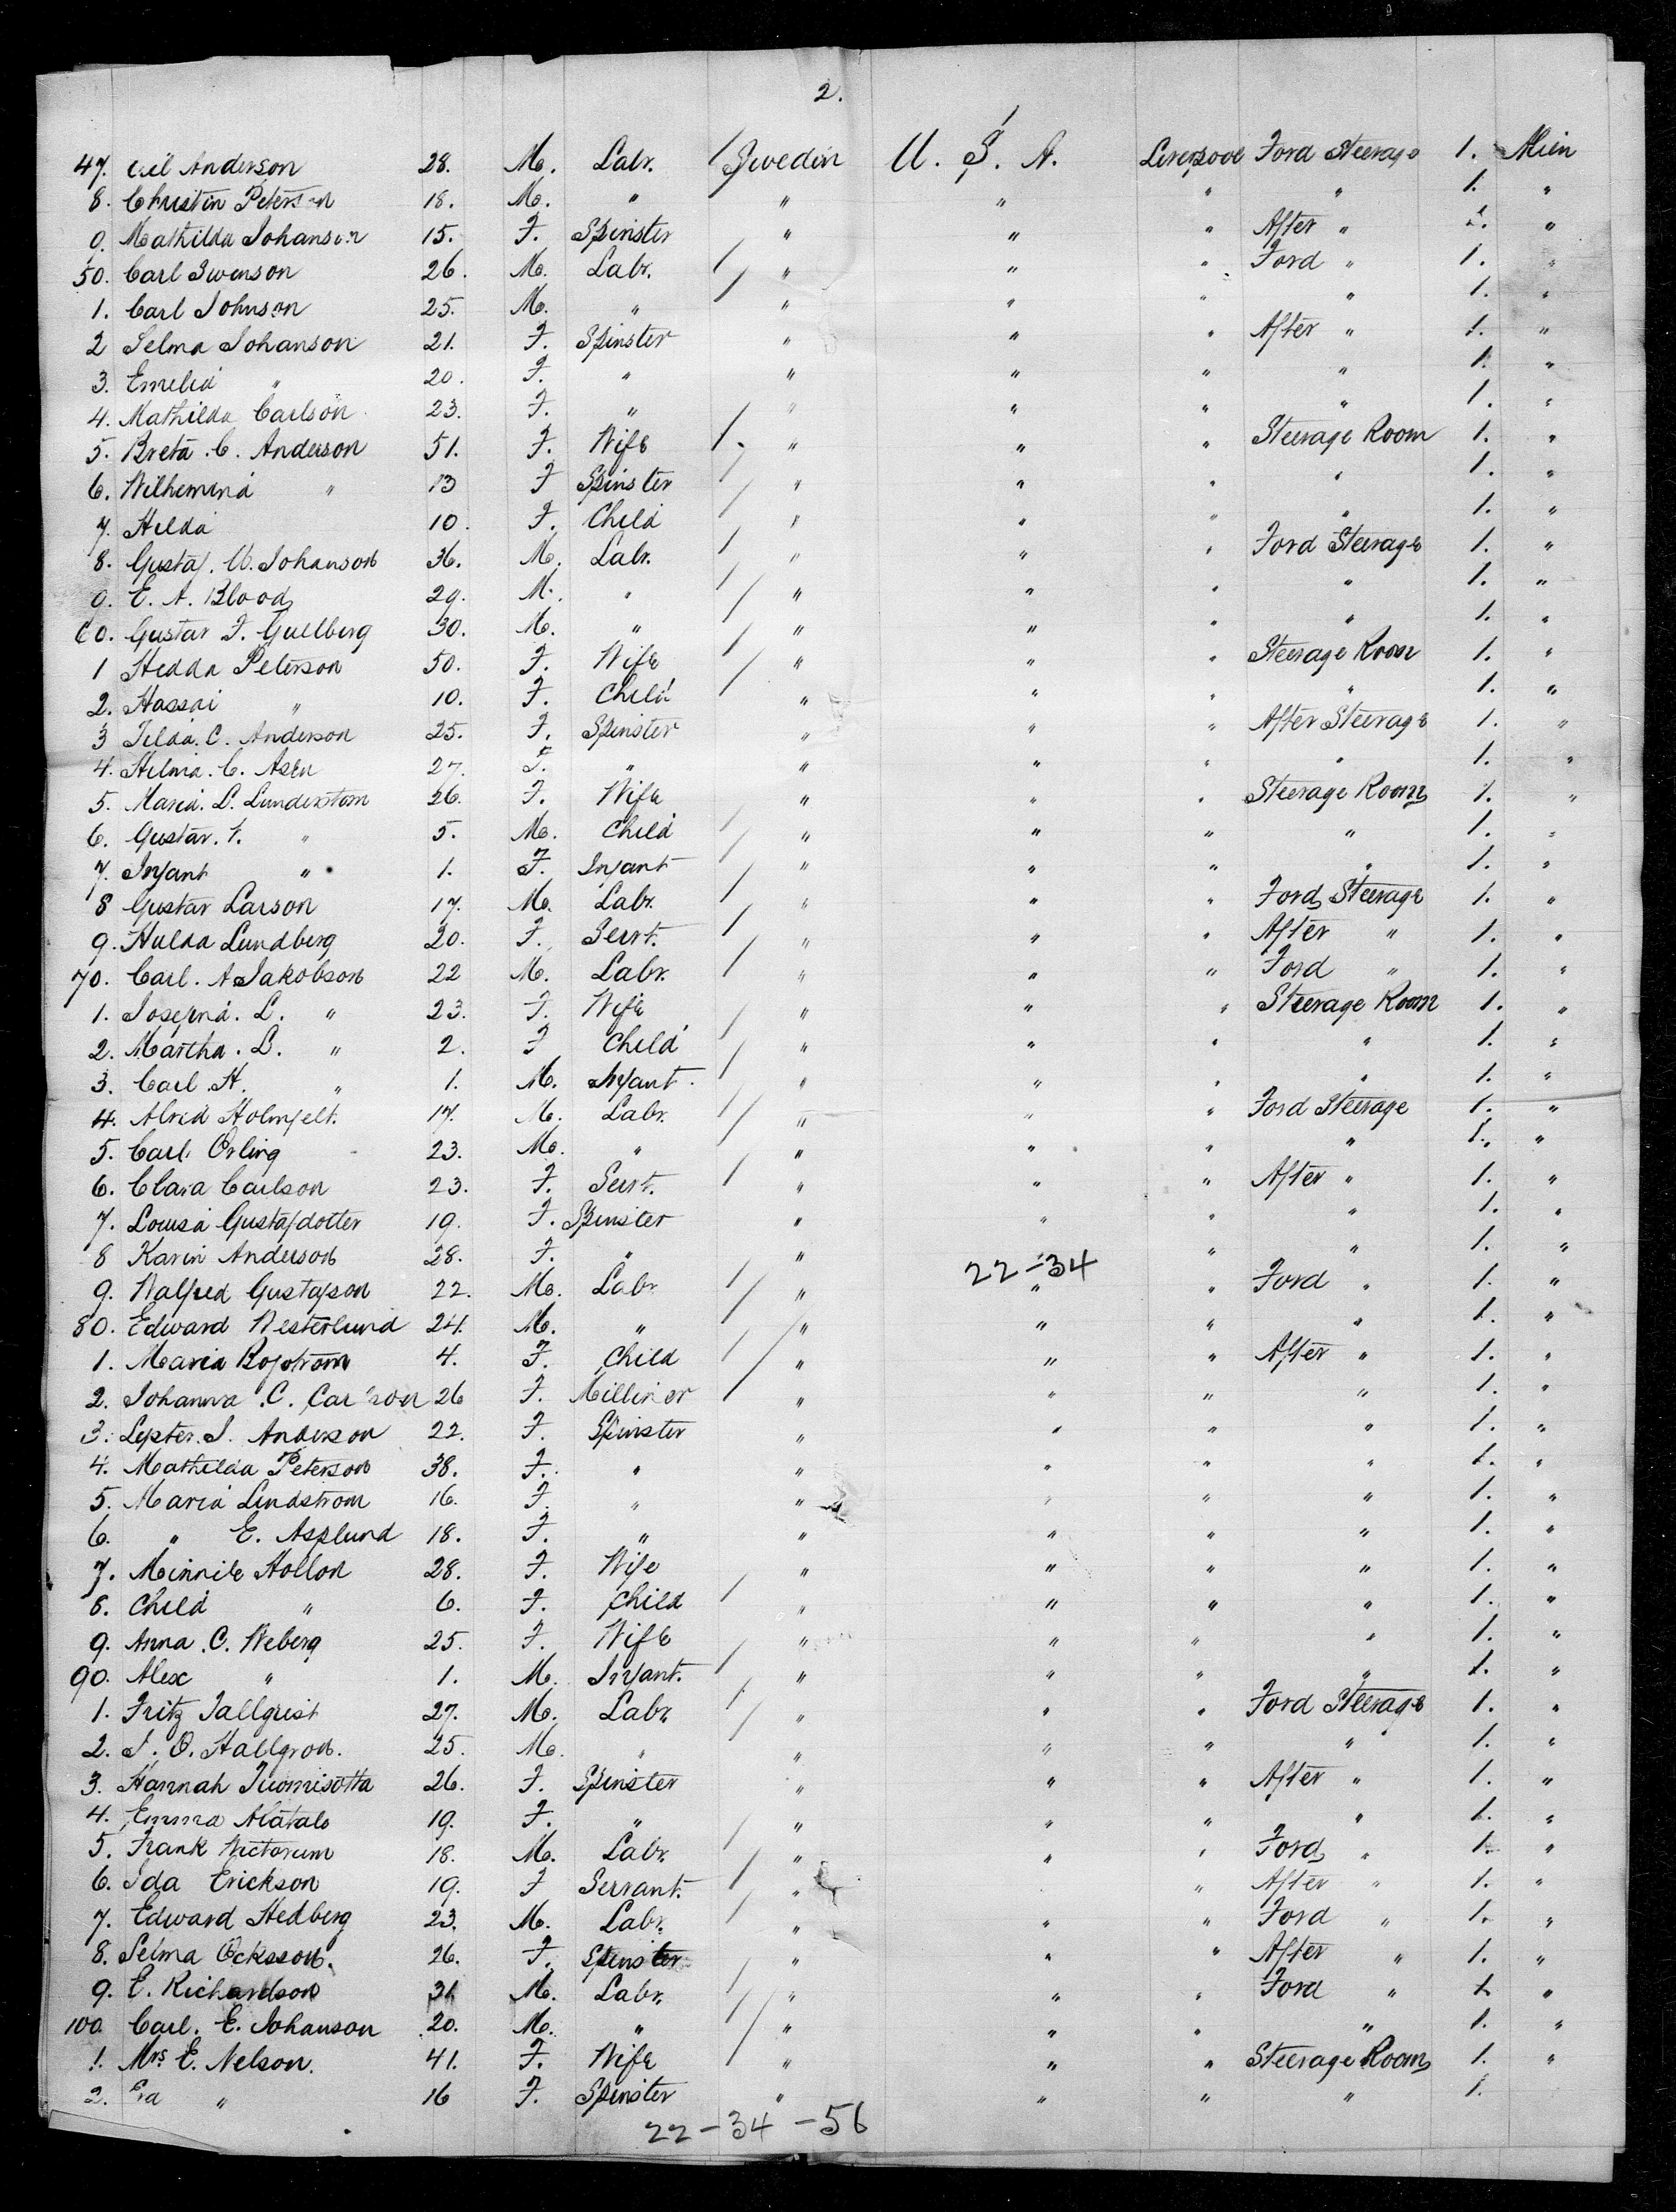 2.
47. Anderson 28. M. Labr. / Sweden U. S. A. Liverpool Ford Steerage 1. Mien
8. Christin Peterson 18. M. " " " " " 1. "
9. Mathilda Johanson 15. F. Spinster " " " After " 1. "
50. Carl Swenson 26. M. Labr. / " " " Ford " 1. "
1. Carl Johnson 25. M. " / " " " " 1. "
2 Selma Johanson 21. F. Spinster " " " After " 1. "
3. Emelia " 20. F. " " " " " 1. "
4. Mathilda Carlson 23. F. " " " " " 1. "
5. Breta. C. Anderson 51. F. Wife / " " " Steerage Room 1. "
6. Wilhemina " 13 F Spinster / " " " " 1. "
7. Hilda 10. F. Child / " " " " 1. "
8. Gustaf. W. Johanson 36. M. Labr. / " " " Ford Steerage 1. "
9. E. A. Blood 29. M. " / " " " " 1. "
60. Gustav F. Gullberg 30. M. " / " " " " 1. "
1 Hedda Peterson 50. F. Wife / " " " Steerage Room 1. "
2. Hassai " 10. F. Child / " " " " 1. "
3 Tilda. C. Anderson 25. F. Spinster " " " After Steerage 1. "
4. Hilma. C. Asen 27. F. " " " " " 1. "
5. Maria. L. Lunderstom 26. F. Wife " " " Steerage Room 1. "
6. Gustav. " 5. M. Child / " " " " 1. "
7. Infant " 1. F. Infant / " " " " 1. "
8 Gustav Larson 17. M. Labr. / " " " Ford Steerage 1. "
9. Hulda Lundberg 20. F. Servt. / " " " After " 1. "
70. Carl. A Jakobson 22 M. Labr. / " " " Ford " 1. "
1. Josefina. L. " 23. F. Wife / " " " Steerage Room 1. "
2. Martha. L. " 2. F Child / " " " " 1. "
3. Carl. H. " 1. M. Infant. / " " " " 1. "
4. Alrid Holmfelt. 17. M. Labr. / " " " Ford Steerage 1. "
5. Carl Orling 23. M. " " " " " 1. "
6. Clara Carlson 23. F. Servt. / " " " After " 1. "
7. Lousia Gustafdotter 19. F. Spinster " " " " 1. "
8 Karin Anderson 28. F. " " " " 1. "
22-34
9. Walfred Gustafson 22. M. Labr / " " " Ford " 1. "
80. Edward Westerlund 24. M. " / " " " " 1. "
1. Maria Bofstrom 4. F. Child / " " " After " 1. "
2. Johanna. C. Carlson 26 F. Milliner / " " " " 1. "
3. Lepter. J. Anderson 22. F. Spinster " " " " 1. "
4. Mathilda Peterson 38. F. " " " " " 1. "
5. Maria Lindstrom 16. F. " " " " " 1. "
6. " E. Asplund 18. F. " " " " " 1. "
7. Minnile Hollon 28. F. Wife " " " " 1. "
8. Child " 6. F. Child / " " " " 1. "
9. Anna. C. Weberg 25. F. Wife / " " " " 1. "
90. Alex " 1. M. Infant. / " " " " 1. "
1. Fritz Tallqrist 27. M. Labr. / " " " Ford Steerage 1. "
2. J. O. Hallgron. 25. M. " " " " " 1. "
3. Hannah Tuomisotta 26. F. Spinster " " " After " 1. "
4. Emma Alatalo 19. F. " " " " " 1. "
5. Frank Victorum 18. M. Labr. / " " " Ford " 1. "
6. Ida Erickson 19. F Servant. / " " After " 1. "
7. Edward Hedberg 23. M. Labr. / " " " Ford " 1. "
8. Selma Ocksson. 26. F. Spinster " " " After " 1. "
9. E. Richardson 31 M. Labr. / " " " Ford " 1. "
100 Carl. E. Johanson 20. M. " / " " " " 1. "
1. Mrs E. Nelson. 41. F. Wife / " " " Steerage Room 1. "
2. " 16 F. Spinster " " " " 1.
22-34-56